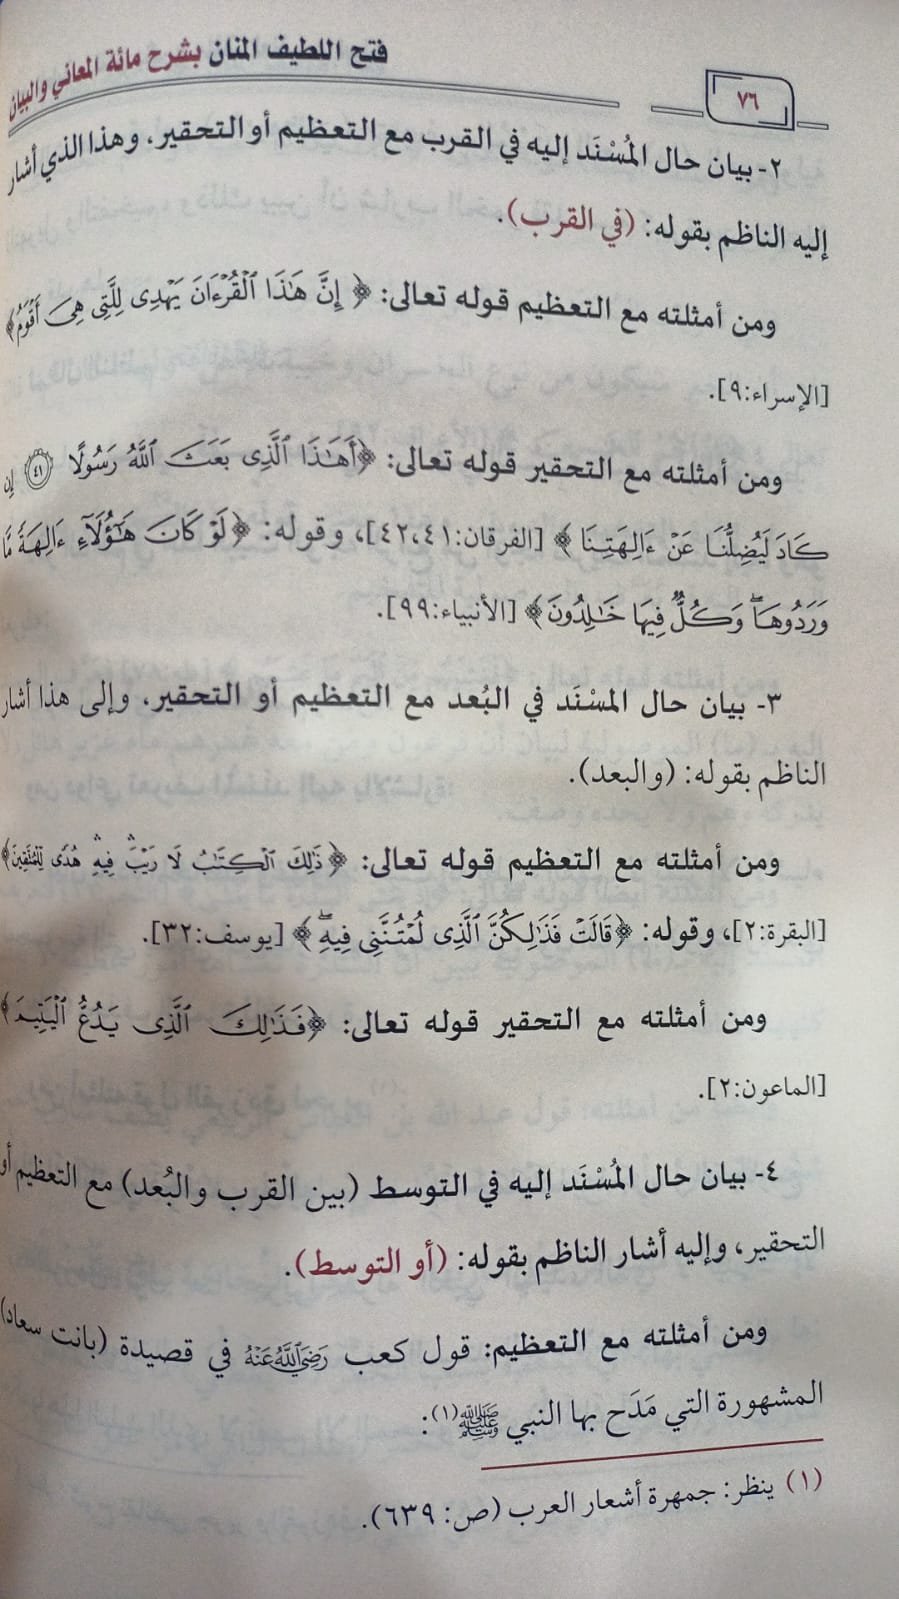 فتح اللطيف المنان بشرح مائة المعاني والبيان
٧٦
٢- بيان حال المُسْنَد إليه في القرب مع التعظيم أو التحقير، وهذا الذي أشار
إليه الناظم بقوله: (في القرب).
ومن أمثلته مع التعظيم قوله تعالى: ﴿إِنَّ هَٰذَا ٱلْقُرْءَانَ يَهْدِى لِلَّتِى هِىَ أَقْوَمُ﴾
[الإسراء:٩].
ومن أمثلته مع التحقير قوله تعالى: ﴿أَهَٰذَا ٱلَّذِى بَعَثَ ٱللَّهُ رَسُولًا ٤١ إِن
كَادَ لَيُضِلُّنَا عَنْ ءَالِهَتِنَا﴾ [الفرقان:٤١،٤٢]، وقوله: ﴿لَوْ كَانَ هَٰٓؤُلَآءِ ءَالِهَةً مَّا
وَرَدُوهَاۖ وَكُلٌّ فِيهَا خَٰلِدُونَ﴾ [الأنبياء:٩٩].
٣- بيان حال المسْنَد في البُعد مع التعظيم أو التحقير، وإلى هذا أشار
الناظم بقوله: (والبعد).
ومن أمثلته مع التعظيم قوله تعالى: ﴿ذَٰلِكَ ٱلْكِتَٰبُ لَا رَيْبَۛ فِيهِۛ هُدًى لِّلْمُتَّقِينَ﴾
[البقرة:٢]، وقوله: ﴿قَالَتْ فَذَٰلِكُنَّ ٱلَّذِى لُمْتُنَّنِى فِيهِۖ﴾ [يوسف:٣٢].
ومن أمثلته مع التحقير قوله تعالى: ﴿فَذَٰلِكَ ٱلَّذِى يَدُعُّ ٱلْيَتِيمَ﴾
[الماعون:٢].
٤- بيان حال المُسْنَد إليه في التوسط (بين القرب والبُعد) مع التعظيم أو
التحقير، وإليه أشار الناظم بقوله: (أو التوسط).
ومن أمثلته مع التعظيم: قول كعب رَضِيَ ٱللَّهُ عَنْهُ في قصيدة (بانت سعاد)
المشهورة التي مَدَح بها النبي ﷺ(١):
(١) ينظر: جمهرة أشعار العرب (ص: ٦٣٩).